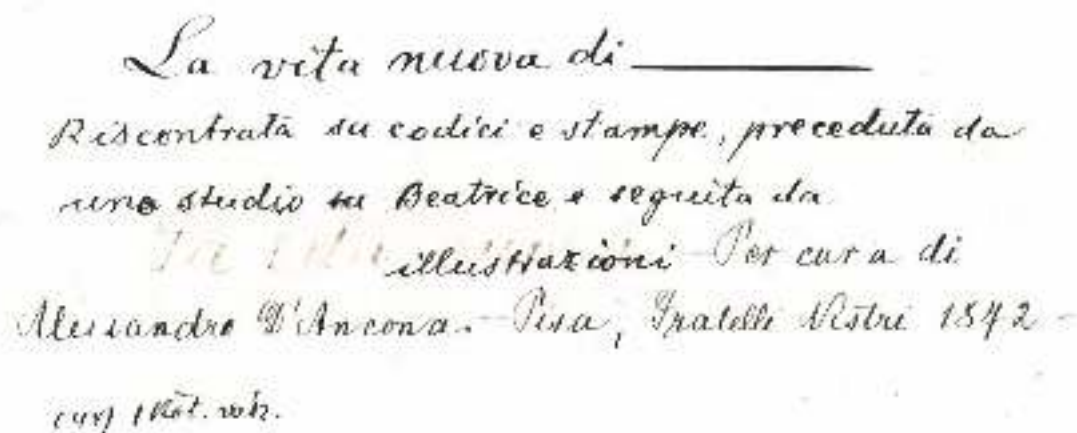 La vita nuova di
Riscontrata su codici e stampe, preceduta da
uno studio su Beatrice e seguita da
illustrazioni Per cura di
Alessandro D'Ancona. - Pisa, Fratelli Nistri 1872 -